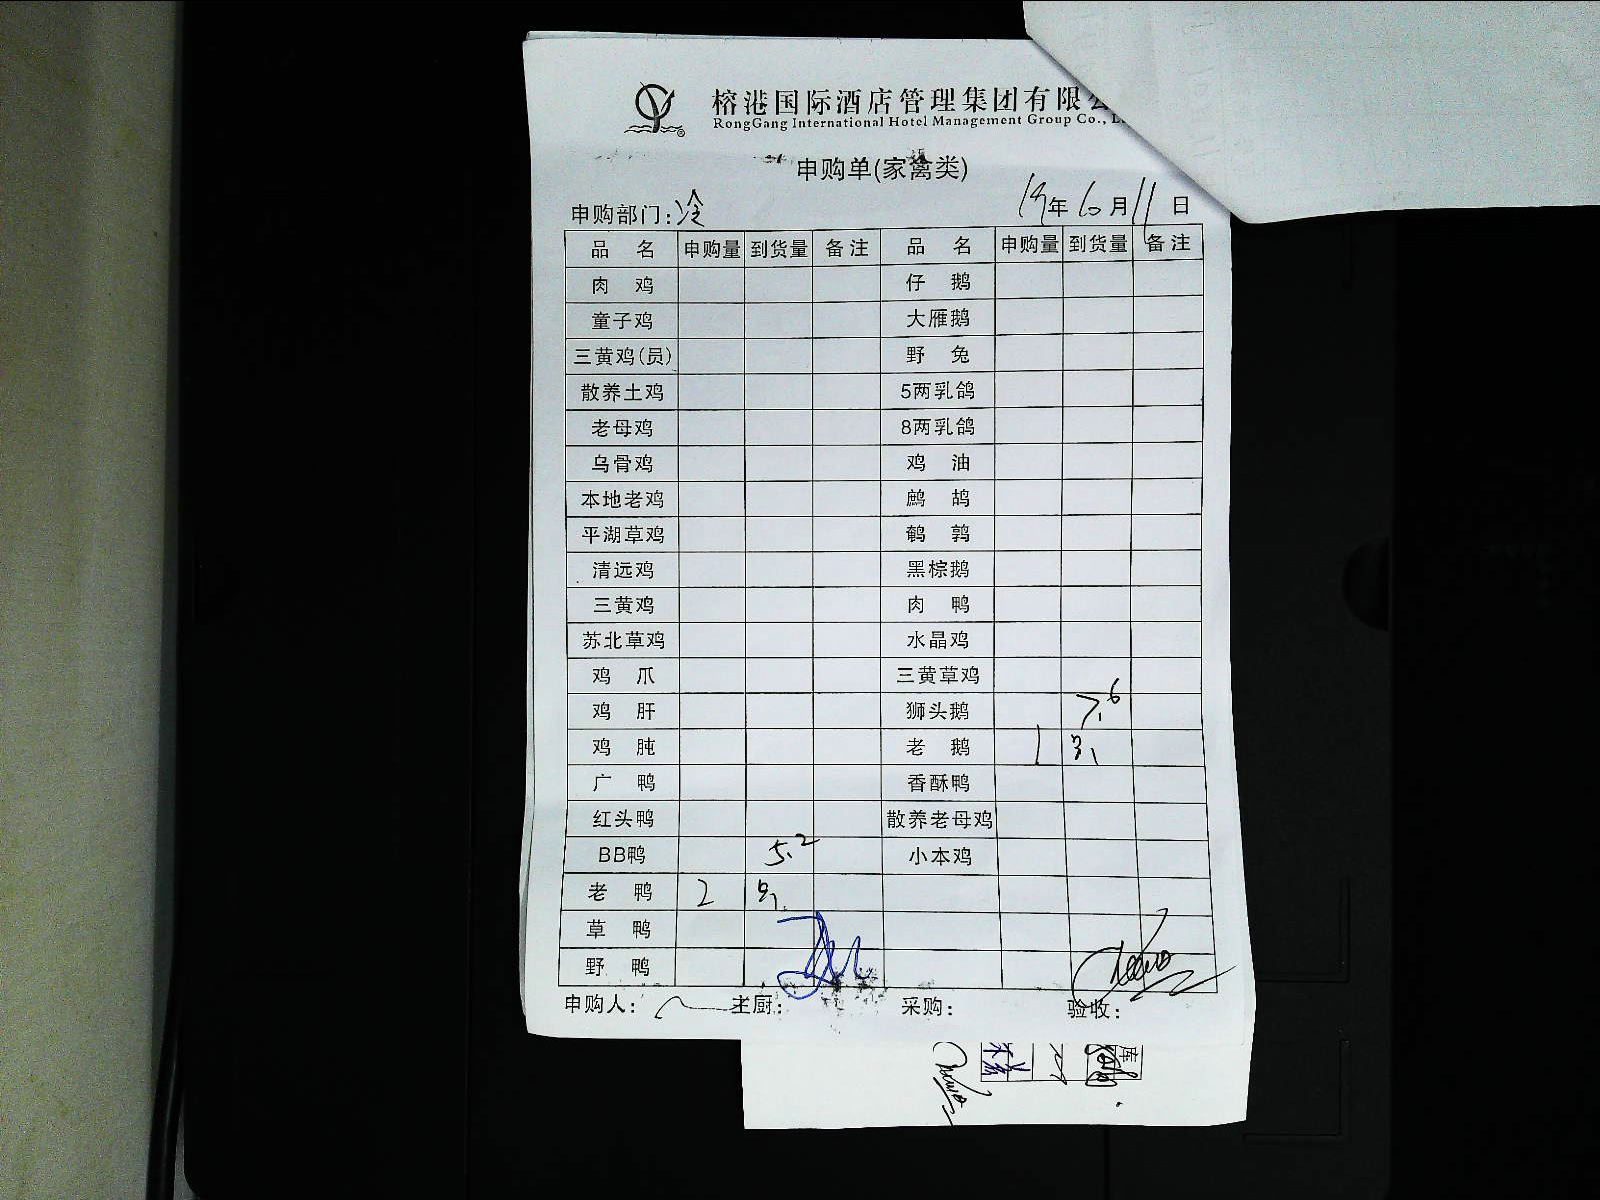 榕港国际酒店管理集团有限公
RongGang International Hotel Management Group Co.,
申购单(家禽类)
申购部门:冷 19年6月11日
品名 申购量 到货量 备注 品名 申购量 到货量 备注
肉鸡 仔鹅
童子鸡 大雁鹅
三黄鸡(员) 野兔
散养土鸡 5两乳鸽
老母鸡 8两乳鸽
乌骨鸡 鸡油
本地老鸡 鹧鸪
平湖草鸡 鹌鹑
清远鸡 黑棕鹅
三黄鸡 肉鸭
苏北草鸡 水晶鸡
鸡爪 三黄草鸡
鸡肝 狮头鹅 7.6
鸡肫 老鹅 1
广鸭 香酥鸭
红头鸭 散养老母鸡
BB鸭 5.2 小本鸡
老鸭 2
草鸭
野鸭
申购人: 主厨: 采购: 验收:
库